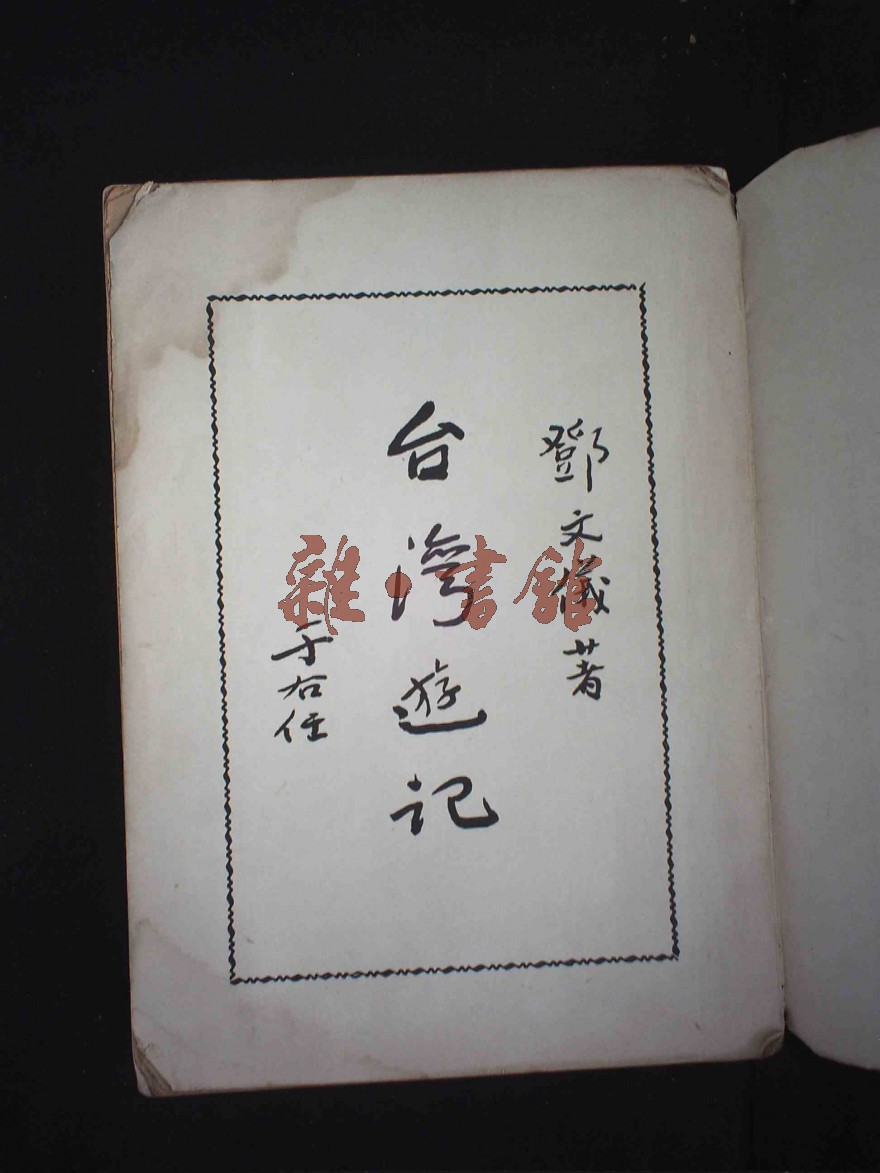 鄧文儀著
台灣遊記
于右任
雜·書館